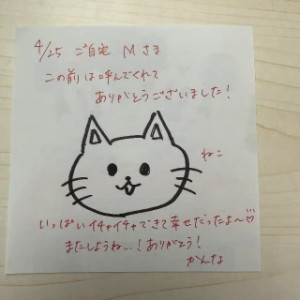 4/25 ご自宅 Mさま
この前は呼んでくれて
ありがとうございました!
ねこ
いっぱいイチャイチャできて幸せだったよ〜♡
またしようね…!ありがとう!
かんな